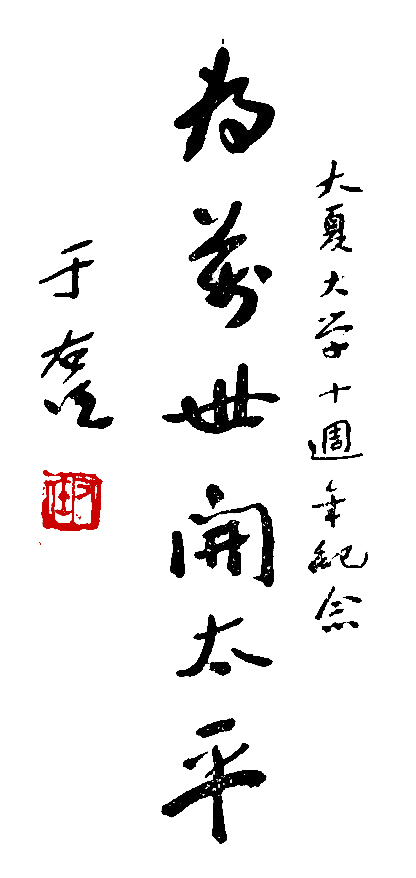 大夏大学十週年紀念
為萬世開太平
于右任
右任